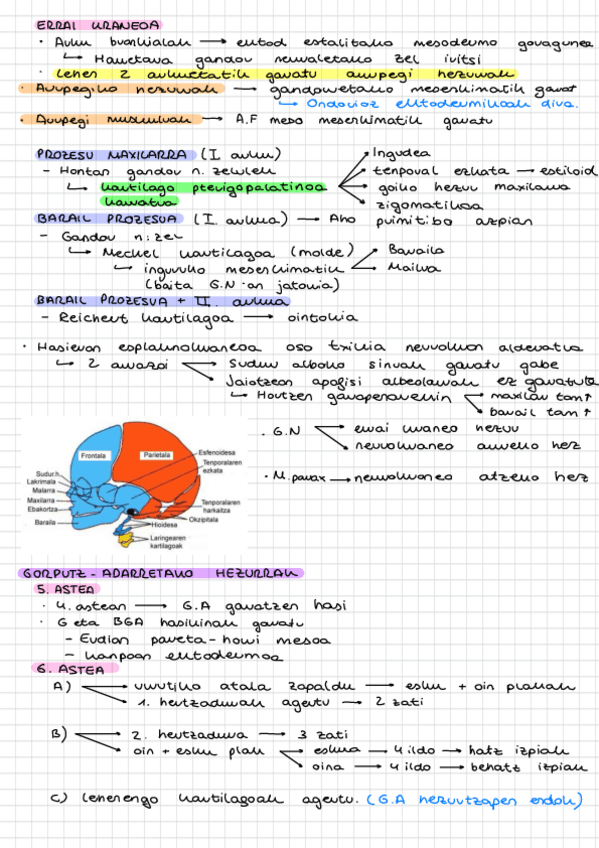 ERRAI KRANEOA
· Arku brankialak → ektod estalitako mesodermo goragunea
↳ Hauetara gandor neuraletako zel iritsi
· Lehen 2 arkuetatik garatu aurpegi hezurrak
· Aurpegiko hezurrak → gandorretako mesenkimatik garat
↳ Ondorioz ektodermikoak dira.
· Aurpegi muskuluak → A.F meso mesenkimatik garatu
PROZESU MAXILARRA (I. arku)
- Hontan gandor n. zelulek
↳ kartilago pterigopalatinoa karratua
Ingudea
tenporal ezkata → estiloid
goiko hezur maxilarra
zigomatikoa
BARAIL PROZESUA (I. arkua) → Aho primitibo azpian
- Gandor n. zel
↳ Meckel kartilagoa (molde)
↳ inguruko mesenkimatik
Baraila
Mailua
(baita G.N-an jatorria)
BARAIL PROZESUA + II. arkua
- Reichert kartilagoa → ointokia
· Hasieran esplaknokraneoa oso txikia neurokran aldera
↳ 2 arrazoi
Sudur alboko sinuak garatu gabe
Jaiotzean apofisi albeolarrak ez garatuta
↳ Hortzen garapenarekin
maxilar tam↑
barail tam↑
Frontala
Parietala
Esfenoidesa
Tenporalaren ezkata
Sudur h.
Lakrimala
Malarra
Maxilarra
Ebakortza
Baraila
Tenporalaren harkaitza
Okzipitala
Hioidesa
Laringearen kartilagoak
· G.N
errai kraneo hezur
neurokraneo aurreko hez
· M. parax → neurokraneo atzeko hez
GORPUTZ-ADARRETAKO HEZURRAK
5. ASTEA
· 4. astean → G.A garatzen hasi
· G eta BGA hasikinak garatu
- Erdian pareta-horri mesoa
- kanpoan ektodermoa
6. ASTEA
A)
urrutiko atala zapaldu → esku + oin plakak
1. hertzadurak agertu → 2 zati
B)
2. hertzadura → 3 zati
oin + esku plak
eskua → 4 ildo → hatz izpiak
oina → 4 ildo → behatz izpiak
C) lehenengo kartilagoak agertu. (G.A hezurtzapen endok)